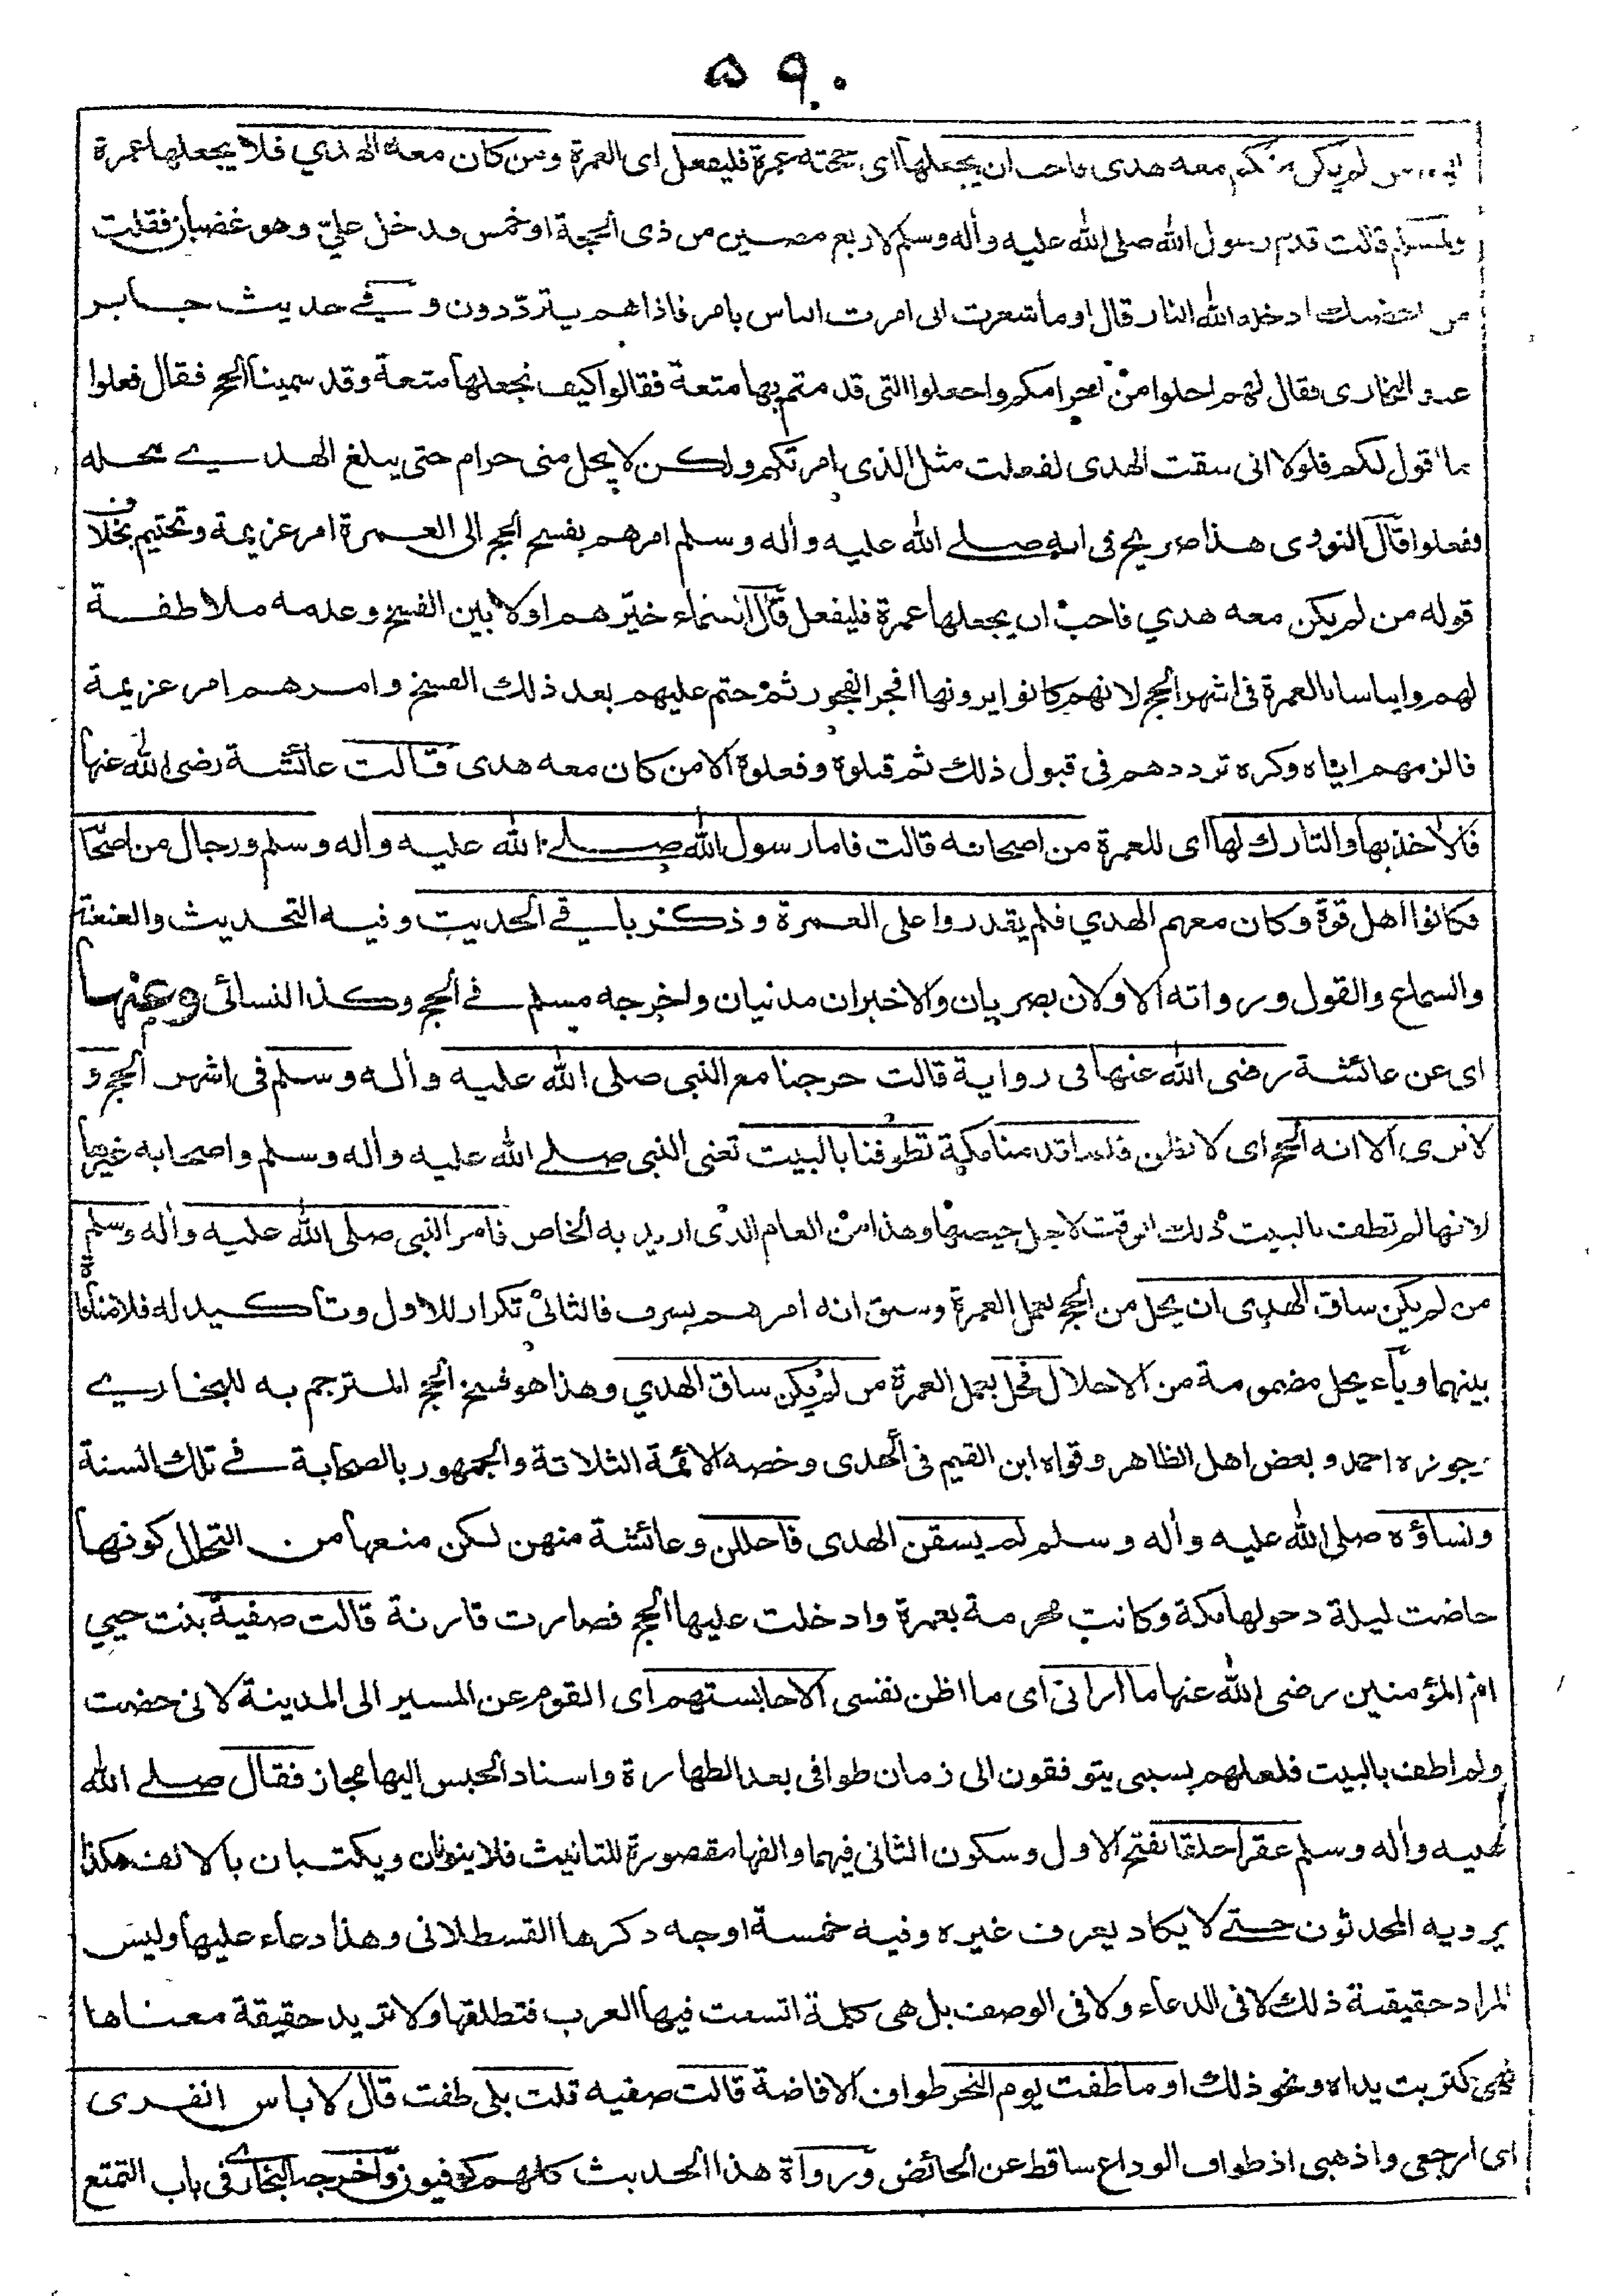 ٥٩٠
لم يكن منكم معه هدى فاحب ان يجعلها اى حجته عمرة فليفعل اى العمرة ومن كان معه الهدي فلا يجعلها عمرة
ولمسلم قالت قدم رسول الله صلى الله عليه وأله وسلم لاربع مضين من ذى الحجة او خمس فدخل عليّ وهو غضبان فقلت
من اغضبك ادخله الله النار قال او ما شعرت انى امرت الناس بامر فاذا هم يترددون و في حديث جابر
عند البخارى فقال لهم احلوا من احرامكم واجعلوا التى قدمتم بها متعة فقالوا كيف نجعلها متعة وقد سمينا الحج فقال فعلوا
ما اقول لكم فلولا انى سقت الهدى لفعلت مثل الذى امرتكم ولكن لا يحل منى حرام حتى يبلغ الهدي محله
ففعلوا قال النووى هذا صريح فى انه صلى الله عليه وأله وسلم امرهم بفسخ الحج الى العمرة امر عزيمة وتحتيم بخلاف
قوله من لم يكن معه هدي فاحب ان يجعلها عمرة فليفعل قال العلماء خيّرهم اولا بين الفسخ وعدمه ملاطفة
لهم وايناسا بالعمرة فى اشهر الحج لانهم كانوا يرونها افجر الفجور ثم حتم عليهم بعد ذلك الفسخ وامرهم امر عزيمة
فالزمهم اياه وكره ترددهم فى قبول ذلك ثم قبلوة وفعلوة الا من كان معه هدى قالت عائشة رضى الله عنها
فالأخذ بها والتارك لها اى للعمرة من اصحابه قالت فاما رسول الله صلى الله عليه وأله وسلم ورجال من اصحا
فكانوا اهل قوة وكان معهم الهدي فلم يقدروا على العمرة وذكر باقي الحديث وفيه التحديث والعنعنة
والسماع والقول ورواته الاولان بصريان والاخيران مدنيان واخرجه مسلم في الحج وكذا النسائى وعنها
اى عن عائشة رضى الله عنها فى رواية قالت خرجنا مع النبى صلى الله عليه وأله وسلم فى اشهر الحج و
لا نرى الا انه الحج اى لا نظن فلما قدمنا مكة تطوفنا بالبيت تعنى النبى صلى الله عليه وأله وسلم واصحابه غيرها
لانها لم تطف بالبيت ذلك الوقت لاجل حيضها وهذا من العام الذى اريد به الخاص فامر النبى صلى الله عليه وأله وسلم
من لم يكن ساق الهدى ان يحل من الحج بعمل العمرة وسبق انه امرهم بسرف فالثانى تكرار للاول وتأكيد له فلا منافاة
بينهما وياء يحل مضمومة من الاحلال فحل بعمل العمرة من لم يكن ساق الهدي وهذا هو فسخ الحج المترجم به للبخاري
وجوزه احمد و بعض اهل الظاهر وقواه ابن القيم فى الهدى وخصه الائمة الثلاثة والجمهور بالصحابة في تلك السنة
ونساؤه صلى الله عليه وأله وسلم لم يسقن الهدى فاحللن وعائشة منهن لكن منعها من التحلل كونها
حاضت ليلة دخولها مكة وكانت محرمة بعمرة وادخلت عليها الحج فصارت قارنة قالت صفية بنت حيي
ام المؤمنين رضى الله عنها ما ارانى اى ما اظن نفسى الا حابستهم اى القوم عن المسير الى المدينة لانى حضت
ولم اطف بالبيت فلعلهم بسببى يتوقفون الى زمان طوافى بعد الطهارة واسناد الحبس اليها مجاز فقال صلى الله
عليه وأله وسلم عقرا حلقا بفتح الاول وسكون الثانى فيهما والفها مقصورة للتانيث فلا ينونان ويكتبان بالالف هكذا
يرويه المحدثون حتى لا يكاد يعرف غيره وفيه خمسة اوجه ذكرها القسطلانى وهذا دعاء عليها وليس
المراد حقيقة ذلك لا فى الدعاء ولا فى الوصف بل هى كلمة اتسعت فيها العرب فتطلقها ولا تريد حقيقة معناها
فهى كتربت يداه ونحو ذلك او ما طفت يوم النحر طواف الافاضة قالت صفيه قلت بلى طفت قال لا باس انفرى
اى ارجعى واذهبى اذ طواف الوداع ساقط عن الحائض ورواة هذا الحديث كلهم كوفيون واخرجه البخارى فى باب التمتع